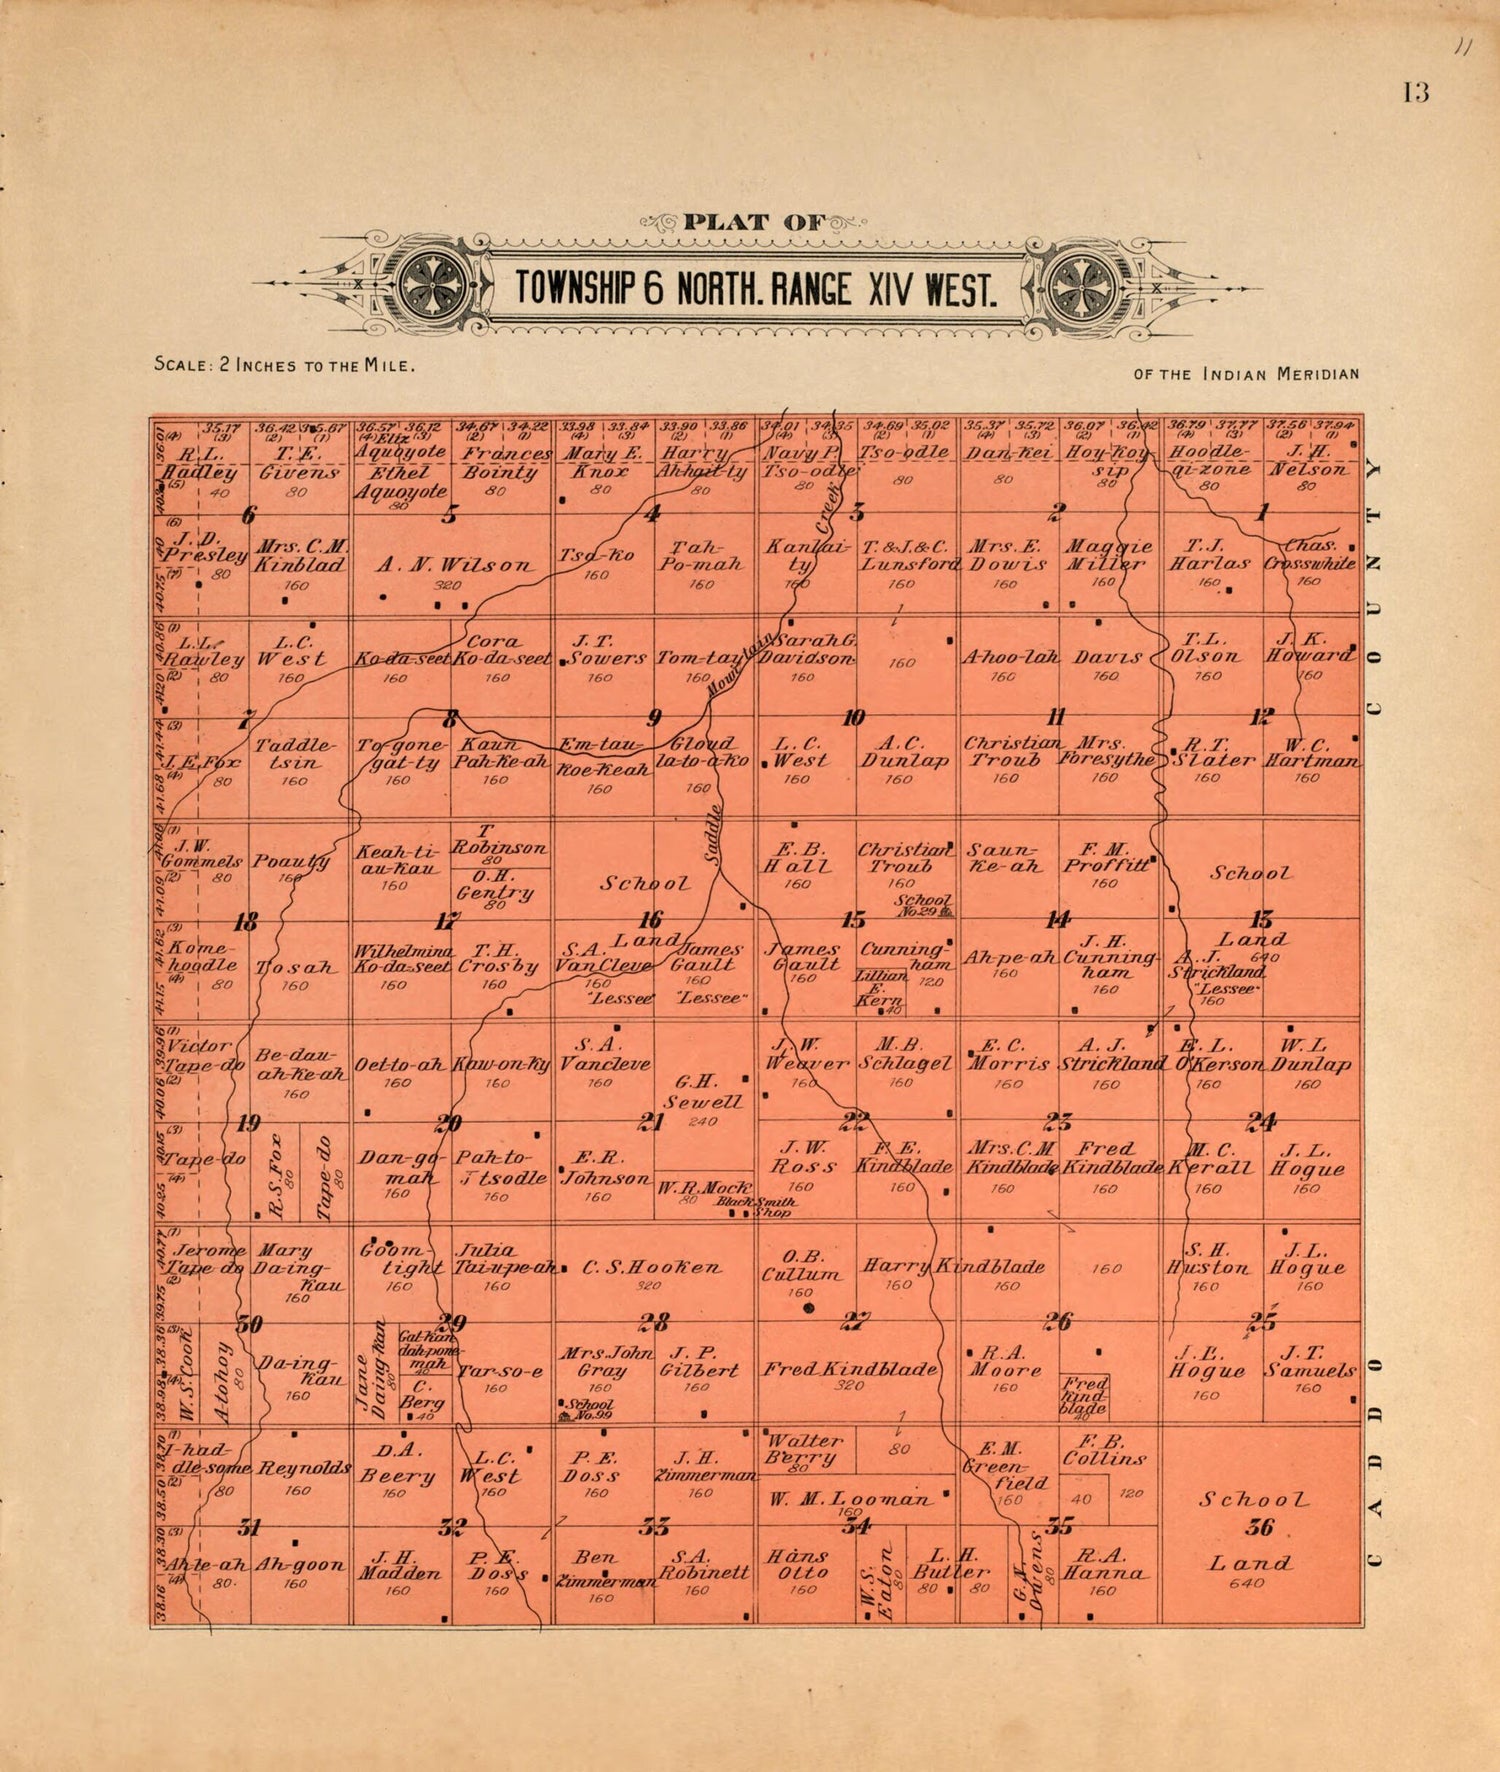 11
13
PLAT OF
TOWNSHIP 6 NORTH. RANGE XIV WEST.
SCALE: 2 INCHES TO THE MILE.
OF THE INDIAN MERIDIAN
36.01 (4) 35.17 (3) 36.42 (2) 35.67 (1) 36.57 (4) 36.12 (3) 34.67 (2) 34.22 (1) 33.98 (4) 33.84 (3) 33.90 (2) 33.86 (1) 34.01 (4) 34.35 (3) 34.69 (2) 35.02 (1) 35.37 (4) 35.72 (3) 36.07 (2) 36.42 (1) 36.79 (4) 37.77 (3) 37.56 (2) 37.94 (1)
R.L. Hadley (5) 40
T.E. Givens 80
Eliz Aquoyote
Ethel Aquoyote 80
Frances Bointy 80
Mary E. Knox 80
Harry Ah-hait-ty 80
Navy P. Tso-odle 80
Tso-odle 80
Dan-kei 80
Hoy-Koy-sip 80
Hoodle-qi-zone 80
J.H. Nelson 80
6 5 4 3 2 1
Creek
(6) J.D. Presley (7) 80
40.75
Mrs. C.M. Kinblad 160
A. N. Wilson 320
Tsa-ko 160
Tah-Po-mah 160
Kanhai-ty 160
T. & J. & C. Lunsford 160
Mrs. E. Dowis 160
Maggie Miller 160
T.J. Harlas 160
Chas. Crosswhite 160
40.86 (1) L.L. Rawley (2) 80
41.20
L.C. West 160
Ko-da-seet 160
Cora Ko-da-seet 160
J.T. Sowers 160
Tom-tay 160
Mountain
Sarah G. Davidson 160
160
A-hoo-lah 160
Davis 160
T.L. Olson 160
J.K. Howard 160
7 8 9 10 11 12
41.44 (3) J.E. Fox (4) 80
41.68
Taddle-tsin 160
To-gone-gat-ty 160
Kaun Pah-ke-ah 160
Em-tau-Koe-Keah 160
Gloud la-to-a-ko 160
L.C. West 160
A.C. Dunlap 160
Christian Troub 160
Mrs. Foresythe 160
R.T. Slater 160
W.C. Hartman 160
Saddle
(1) J.W. Gommels (2) 80
41.09
Poauty 160
Keah-ti-au-kau 160
T Robinson 80
O.H. Gentry 80
School
E.B. Hall 160
Christian Troub 160
School No.29
Saun-Ke-ah
F.M. Proffitt 160
School
18 17 16 15 14 13
41.62 (3) Kome-hoodle (4) 80
41.15
Tosah 160
Wilhelmina Ko-da-seet 160
T.H. Crosby 160
Land
S.A. VanCleve 160 "Lessee"
James Gault 160 "Lessee"
James Gault 160
Cunningham 120
Lillian E. Kern 40
Ah-pe-ah 160
J.H. Cunningham 160
Land 640
A.J. Strickland "Lessee" 160
39.96 (1) Victor Tape-do (2)
40.06
Be-dau-ah-ke-ah 160
Oet-to-ah 160
Kaw-on-ky 160
S.A. Vancleve 160
G.H. Sewell 240
J.W. Weaver 160
M.B. Schlagel 160
E.C. Morris 160
A.J. Strickland 160
E.L. O'Kerson 160
W.L. Dunlap 160
19 20 21 22 23 24
40.15 (3) Tape-do (4)
40.25
R.S. Fox 80
Tape-do 80
Dan-go-mah 160
Pah-to-Jtsodle 160
E.R. Johnson 160
W.R. Mock 80
Black Smith Shop
J.W. Ross 160
F.E. Kindblade 160
Mrs. C.M Kindblade 160
Fred Kindblade 160
M.C. Kerall 160
J.L. Hogue 160
40.77 (1) Jerome Tape do (2)
39.75
Mary Da-ing-Kau 160
Goom-tight 160
Julia Tai-u-pe-ah 160
C.S. Hooken 320
O.B. Cullum 160
Harry Kindblade 160 160
160
S.H. Huston 160
J.L. Hogue 160
30 29 28 27 26 25
38.36 (3) W.S. Cook (4)
38.98
A-tohoy 80
Da-ing-kau 160
Jane Daing-Kau 80
Gat-Kan dah-pone-mah 40
C. Berg 40
Tar-so-e 160
Mrs. John Gray 160
School No.99
J.P. Gilbert 160
Fred Kindblade 320
R.A. Moore 160
Fred Kindblade 40
J.L. Hogue 160
J.T. Samuels 160
38.70 (1) I-had-dle-some (2) 80
38.50
Reynolds 160
D.A. Beery 160
L.C. West 160
P.E. Doss 160
J.H. Zimmerman 160
Walter Berry 80
80
W. M. Looman 160
E.M. Greenfield 160
F.B. Collins
40 120
School
31 32 33 34 35 36
38.30 (3) Ahle-ah (4) 80
38.16
Ah-goon 160
J.H. Madden 160
P.E. Doss 160
Ben Zimmerman 160
S.A. Robinett 160
Hans Otto 160
W.S. Eaton 80
L.H. Butler 80 80
Owens 80
R.A. Hanna 160
Land 640
CADDO COUNTY